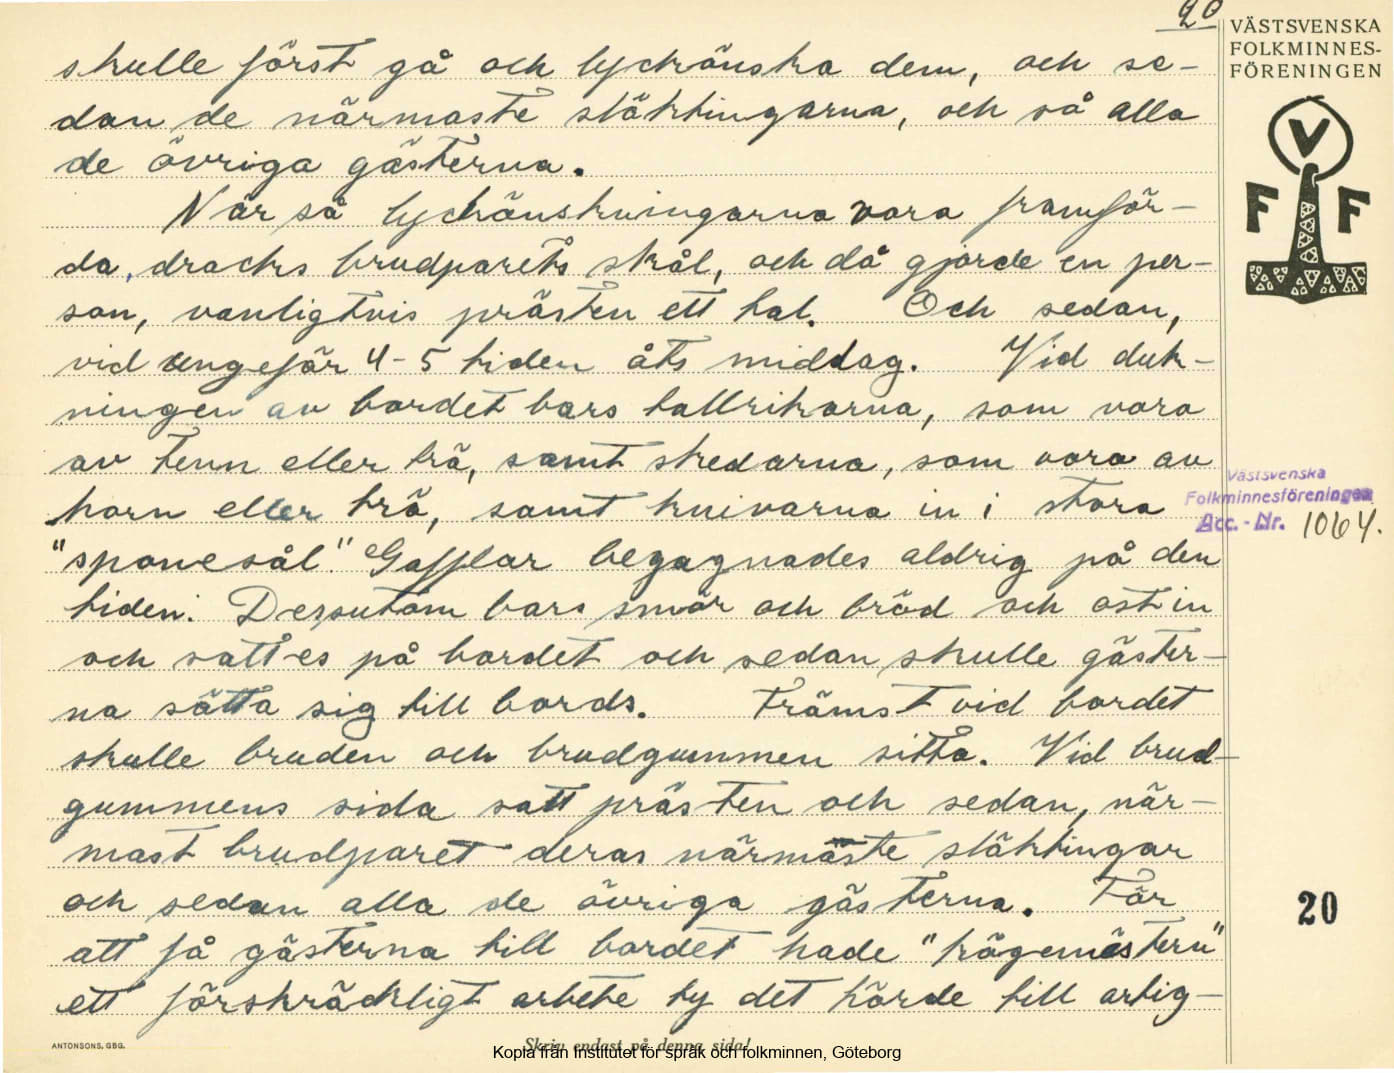 20
VÄSTSVENSKA
FOLKMINNES-
FÖRENINGEN
V
F F
skulle först gå och lyckönska dem, och se-
dan de närmaste släktingarna, och så alla
de övriga gästerna.
När så lyckönskningarna voro framför-
da, dracks brudparets skål, och då gjorde en per-
son, vanligtvis prästen ett tal. Och sedan,
vid ungefär 4-5 tiden åts middag. Vid duk-
ningen av bordet bars tallrikarna, som voro
av tenn eller trä, samt skedarna, som voro av
horn eller trä, samt knivarna in i stora
"sponesål". Gafflar begagnades aldrig på den
tiden. Dessutom bars smör och bröd och ost in
och sattes på bordet och sedan skulle gäster-
na sätta sig till bords. Främst vid bordet
skulle bruden och brudgummen sitta. Vid brud-
gummens sida satt prästen och sedan, när-
mast brudparet deras närmaste släktingar
och sedan alla de övriga gästerna. För
att få gästerna till bordet hade "kögemästern"
ett förskräckligt arbete ty det hörde till artig-
Västsvenska
Folkminnesföreningen
Acc. - Nr. 1064.
20
ANTONSONS, GBG.
Skriv endast på denna sida!
Kopia från Institutet för språk och folkminnen, Göteborg